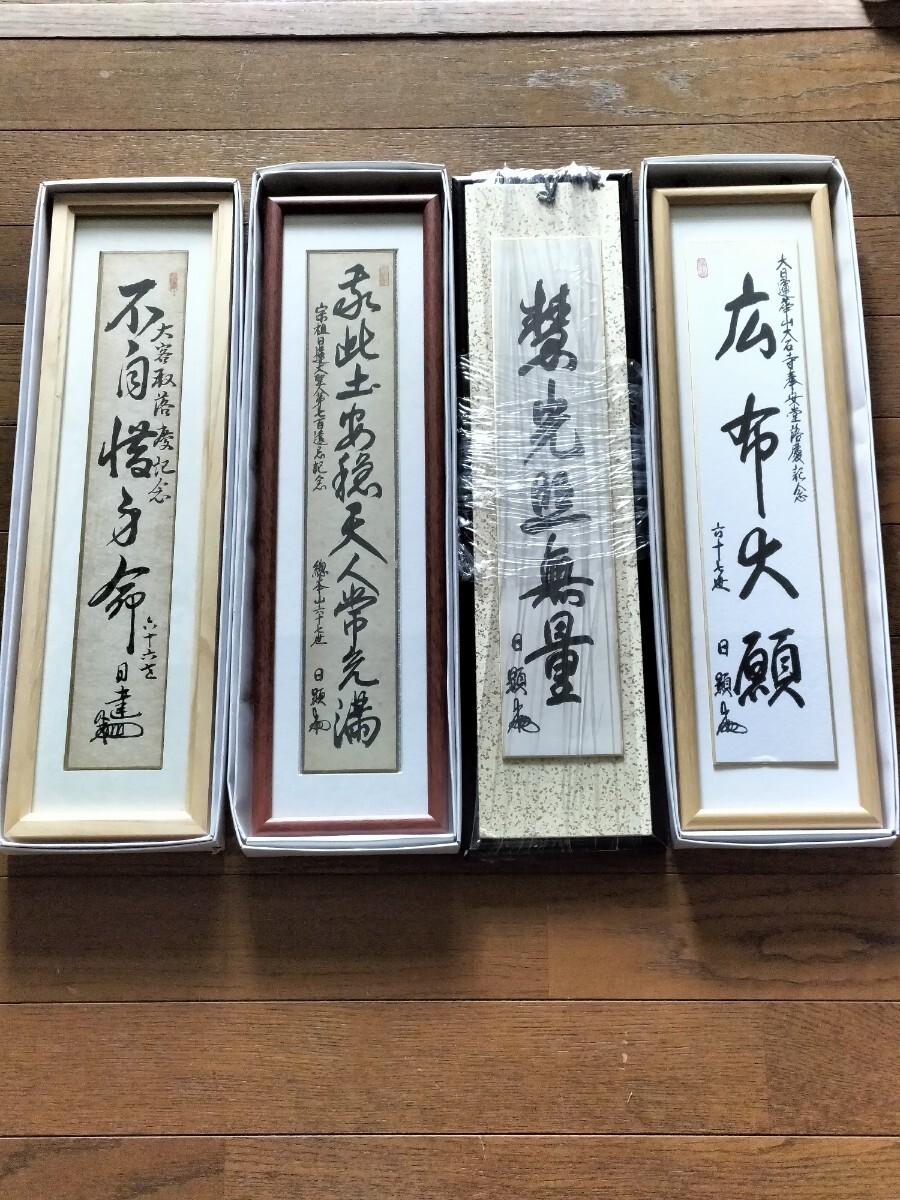 不自惜身命
大客殿落慶記念
六十六世
日達
我此土安穏天人常充満
宗祖日蓮大聖人第七百遠忌記念
總本山六十七世
日顕
慧光照無量
日顕
大日蓮華山大石寺奉安堂落慶記念
広布大願
六十七世
日顕